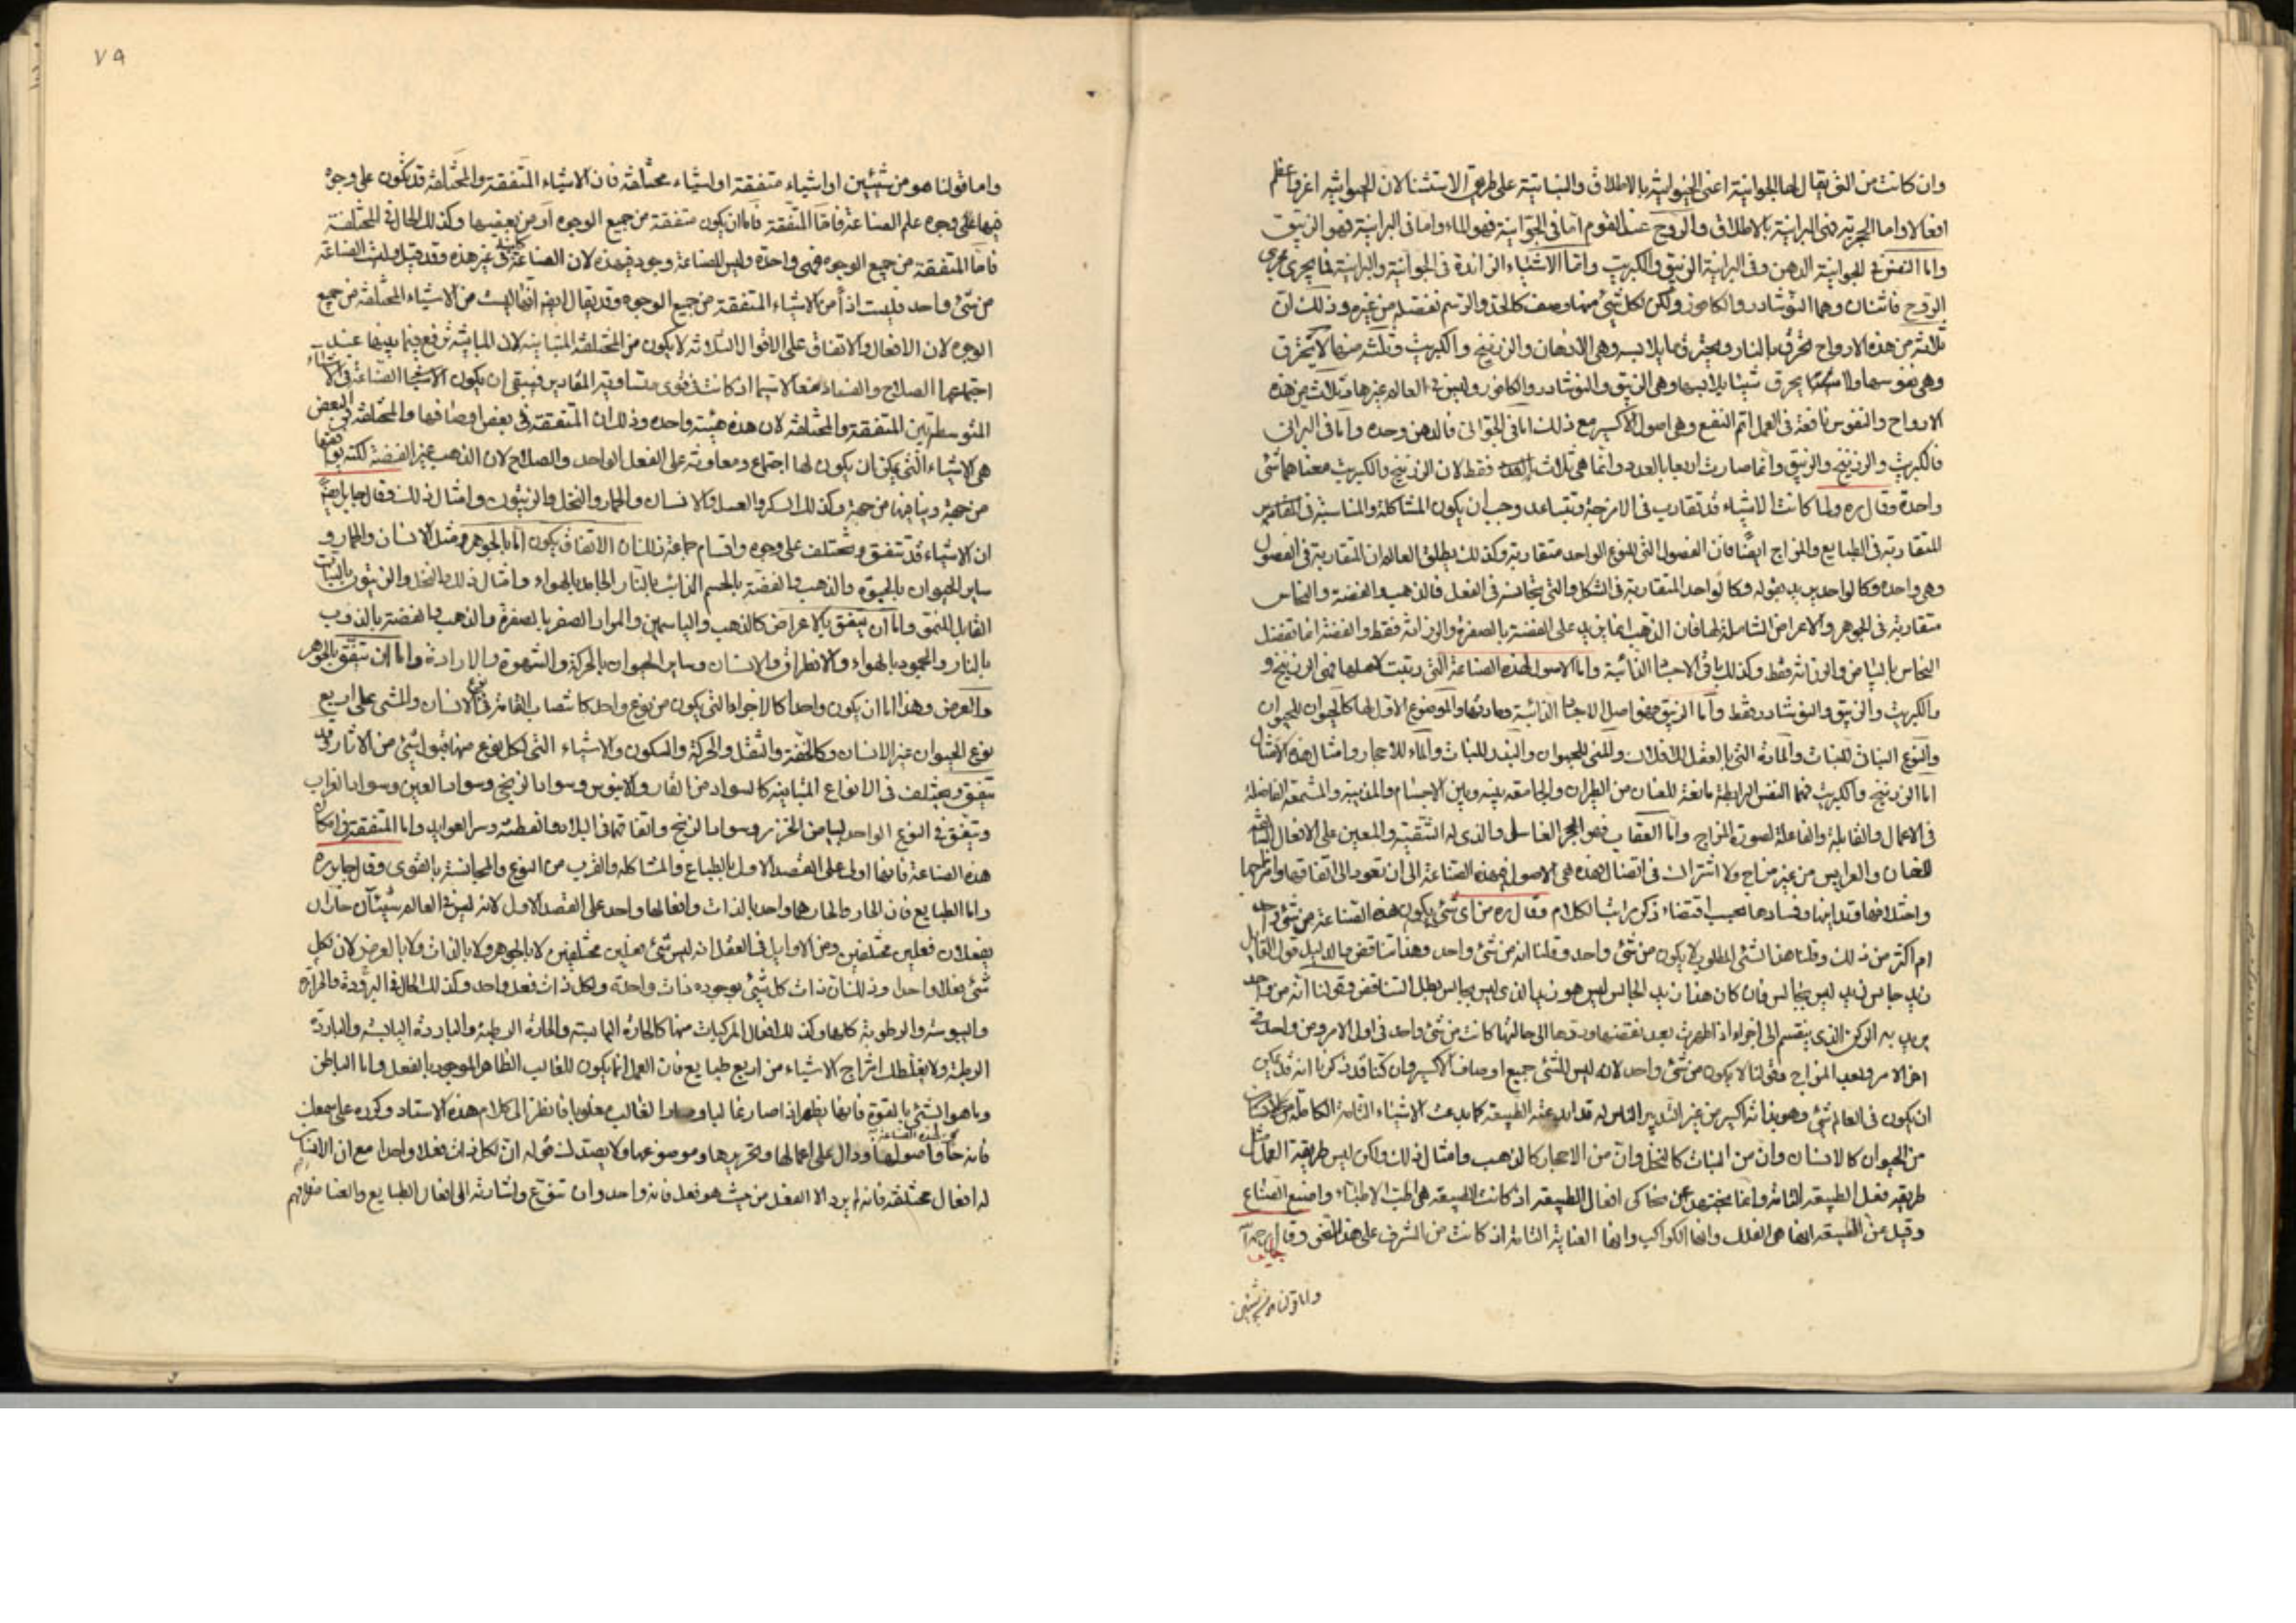 وان كانت من التى يقال لها الجوانية اعنى الحيوانية بالاطلاق والنباتية على طريق الاستثنا لان الحيوانية اغزر واعظم
افعالا واما الحجرية فهى البرانية بالاطلاق والروح عند القوم اما فى الجوانية فهو الماء واما فى البرانية فهو الزيبق
واما النفس فى الجوانية الدهن وفى البرانية الزرنيخ والكبريت واما الاشياء الزائدة فى الجوانية والبرانية فما يجرى مجرى
الروح فاثنان وهما النوشادر والكافور ولكن لكل شئ منها وصف كالحد والرسم تفصله من غيره وذلك ان
ثلاثة من هذه الارواح تحترق بالنار وتحرق ما يلابسه وهى الادهان والزرنيخ والكبريت وثلثة منها لا تحترق
وهى نفوسها ولا يحرق شيئا يلابسها وهى الزيبق والنوشادر والكافور وليس فى العالم غيرها وثلاث من هذه
الارواح والنفوس نافعة فى العمل اتم النفع وهى اصول الاكسير مع ذلك اما فى الجوانى فالدهن وحده واما فى البرانى
فالكبريت والزرنيخ والزيبق وانما صارت اربعا بالعدد وانما هى ثلاث فقط لان الزرنيخ والكبريت معناهما شئ
واحدة وقال ره ولما كانت الاشياء قد تقارب فى الامزجة وتتباعد وجب ان يكون المشاكلة والمناسبة فى التقادير
المتقاربة فى الطبايع والمزاج ايضا فان الفصول التى للنوع الواحد متقاربة وكذلك يطلق العالم ان المتقاربة فى الفصول
وهى واحده وكالواحد يريد بقوله وكالواحد المتقاربة فى الشكل والتى يتجانس فى الفعل فالذهب والفضة والنحاس
متقاربة فى الجوهر والاعراض الشاملة لها فان الذهب انما يزيد على الفضة بالصفرة والرزانة فقط والفضة انما تفضل
النحاس بالبياض والرزانة فقط وكذلك باقى الاجساد الذائبة واما الاصول لهذه الصناعة التى رتبت لاهلها فهى الزرنيخ و
والكبريت والزيبق والنوشادر فقط واما الزيبق فهو اصل الاجساد الذائبة ومادتها والموضوع الاول لها كالحيوان للحيوان
والنوع النباتى للنبات والمادة التى بالعقل للافلاك والمنى للحيوان والبذر للنبات والماء للاحجار وامثال هذه الامثال
اما الزرنيخ والكبريت فهما النفس الرابطة مانعة للنار من الطيران والجامعة بينه وبين الاجسام والمذيبة والمشمعة الفاضلة
فى الاعمال والقابلة والفاعلة لصورة المزاج واما العقاب فهو الحجر الغاسل والذى له التنقية والمعين على الافعال
من غير مزاج ولا اشتراك فى اتصال فهذه هى الاصول فى هذه الصناعة الى ان نعود الى اتفاقها وامتزاجها
واختلافها وتدابيرها وفسادها بحسب اقتضاء ذكر مراتب الكلام وقال ره من اى شئ يكون هذه الصناعة من شئ واحد
ام اكثر من ذلك وقلنا هذا الشئ المطلوب لا يكون من شئ واحد وقلنا انه من شئ واحد وهذا تناقض بالدليل قول القايل
زيد جالس زيد ليس بجالس فان كان هذا زيد الجالس ليس هو زيد الذى ليس بجالس بطل التناقض وقولنا انه من واحد
يريد به الركن الذى ينقسم الى اجزاء اذا ظهرت بعد نقضها وردها الى حالتها كانت من شئ واحد فى اول الامر ومن واحد فى
اخر الامر وبعد المزاج وقولنا لا يكون من شئ واحد لانه ليس للشئ جميع اوصاف الاكسير وان كنا قد ذكرنا انه قد يمكن
ان يكون فى العالم شئ وهو بذاته اكسير من غير التدبير الناس له قد ابدعته الطبيعة كما يبدعت الاشياء التامة الكاملة
من الحيوان كالانسان وان من النبات كالنخل وان من الاحجار كالذهب وامثال ذلك ولكن ليس طريقة العمل مثل
طريقة فعل الطبيعة التامة وانما نحن نحاكى افعال الطبيعة اذ كانت الطبيعة هى اطب الاطباء واصنع الصناع
وقيل عن الطبيعة انها هى الفلك وانها الكواكب وانها العناية التامة اذ كانت من الشرف على هذا المعنى وقال جابر
واما قولنا من شيئين
٧٩
واما قولنا هو من شيئين او اشياء متفقة او اشياء مختلفة فان الاشياء المتفقة والمختلفة قد تكون على وجوه
فيها على وجوه علم الصناعة فاما المتفقة فاما ان يكون متفقة من جميع الوجوه او من بعضها وكذلك الحال فى المختلفة
فاما المتفقة من جميع الوجوه فهى واحدة وليس للصناعة وجود فى هذه لان الصناعة كلها فى غير هذه وقد قيل وليست الصناعة
من شئ واحد فليست اذاً من الاشياء المتفقة من جميع الوجوه وقد يقال ايضا انها ليست من الاشياء المختلفة من جميع
الوجوه لان الافعال والاتفاق على الاقوال الثلاثة لا يكون من المختلفة المتباينة لان المباينة ترفع فيما بينها عند
اجتماعها الصلاح والفساد معا لاسيما اذ كانت فى قوى متساوية المقادير فيبقى ان يكون الاشياء الصناعة فى الاشياء
المتوسطة بين المتفقة والمختلفة لان هذه هيئة واحده وذلك ان المتفقة فى بعض اوصافها والمختلفة فى البعض
هى الاشياء التى يمكن ان يكون لها اجتماع ومعاونة على الفعل الواحد والصلاح لان الذهب غير الفضة لكنه يوافقها
من جهة ويباينها من جهة وكذلك السكر والعسل والانسان والحمار والنخل والزيتون وامثال ذلك وقال جابر ايضاً
ان الاشياء قد تتفق وتختلف على وجوه واقسام جماعة فلسان الاتفاق يكون اما بالجوهر مثل الانسان والحمار و
ساير الحيوان بالحيوة والذهب والفضة بالجسم الذائب بالنار الجامد بالهواء وامثال ذلك والنخل والزيتون بالنبات
القابل للنمو واما ان يتفق بالاعراض كالذهب والياسمين والمرار الصفر بالصفرة والذهب والفضة بالذوب
بالنار والجمود بالهواء والانطراق والانسان وساير الحيوان بالحركة والشهوة والارادة واما ان تتفق بالجوهر
والعرض وهذا اما ان يكون واحدا كالاجزاء التى يكون من نوع واحد كانتصاب القامة فى نوع الانسان والمشى على اربع
نوع الحيوان غير الانسان وكالخفة والثقل والحركة والسكون والاشياء التى لكل نوع منها قبول شئ من الاثار وقد
تتفق وتختلف فى الانواع المتباينة كالسواد من القار والابنوس وسواد الزنجى وسواد العين وسواد الغراب
وتتفق فى النوع الواحد لبياض الخزر وسواد الزنج واتفاقها فى البلاد والفطنة وسر العوايد واما المتفقة فى امكان
هذه الصناعة فانها اولى على القصد الاول بالطباع والمشاكلة والقرب من النوع والمجانسة بالقوى وقال جابر ره
واما الطبايع فان الحار والحار هما واحد بالذات وافعالها واحد على القصد الاول لانه ليس فى العالم شيئان حاران
يفعلان فعلين مختلفين ومن الاوايل فى العقل انه ليس شئ يفعل فعلين مختلفين لا بالجوهر ولا بالذات ولا بالعرض لان لكل
شئ فعلا واحدا وذلك ان ذات كل شئ بوجوده ذات واحدة ولكل ذات فعل واحد وكذلك الحال فى البرودة والحرارة
واليبوسة والرطوبة كلها وكذلك افعال المركبات منها كالحارة اليابسة والحارة الرطبة والباردة اليابسة والباردة
الرطبة ولا يغلطك امتزاج الاشياء من اربع طبايع فان العمل انما يكون للغالب الظاهر الموجود بالفعل واما الباطن
وما هو الشئ بالقوة فانما يظهر اذا صار غالبا وصار الغالب مغلوبا فانظر الى كلام هذه الاستاد وكرره على سمعك
فانه حاو اصول هذه الصناعة ودال على اعمالها وتحريرها وموضوعها ولا يصدنك قوله ان لكل ذات فعلا واحدا مع ان الانسان
له افعال مختلفة فانه لم يرد الا الفعل من حيث هو فعل فانه واحد وان تنوع واشارته الى افعال الطبايع والعناصر